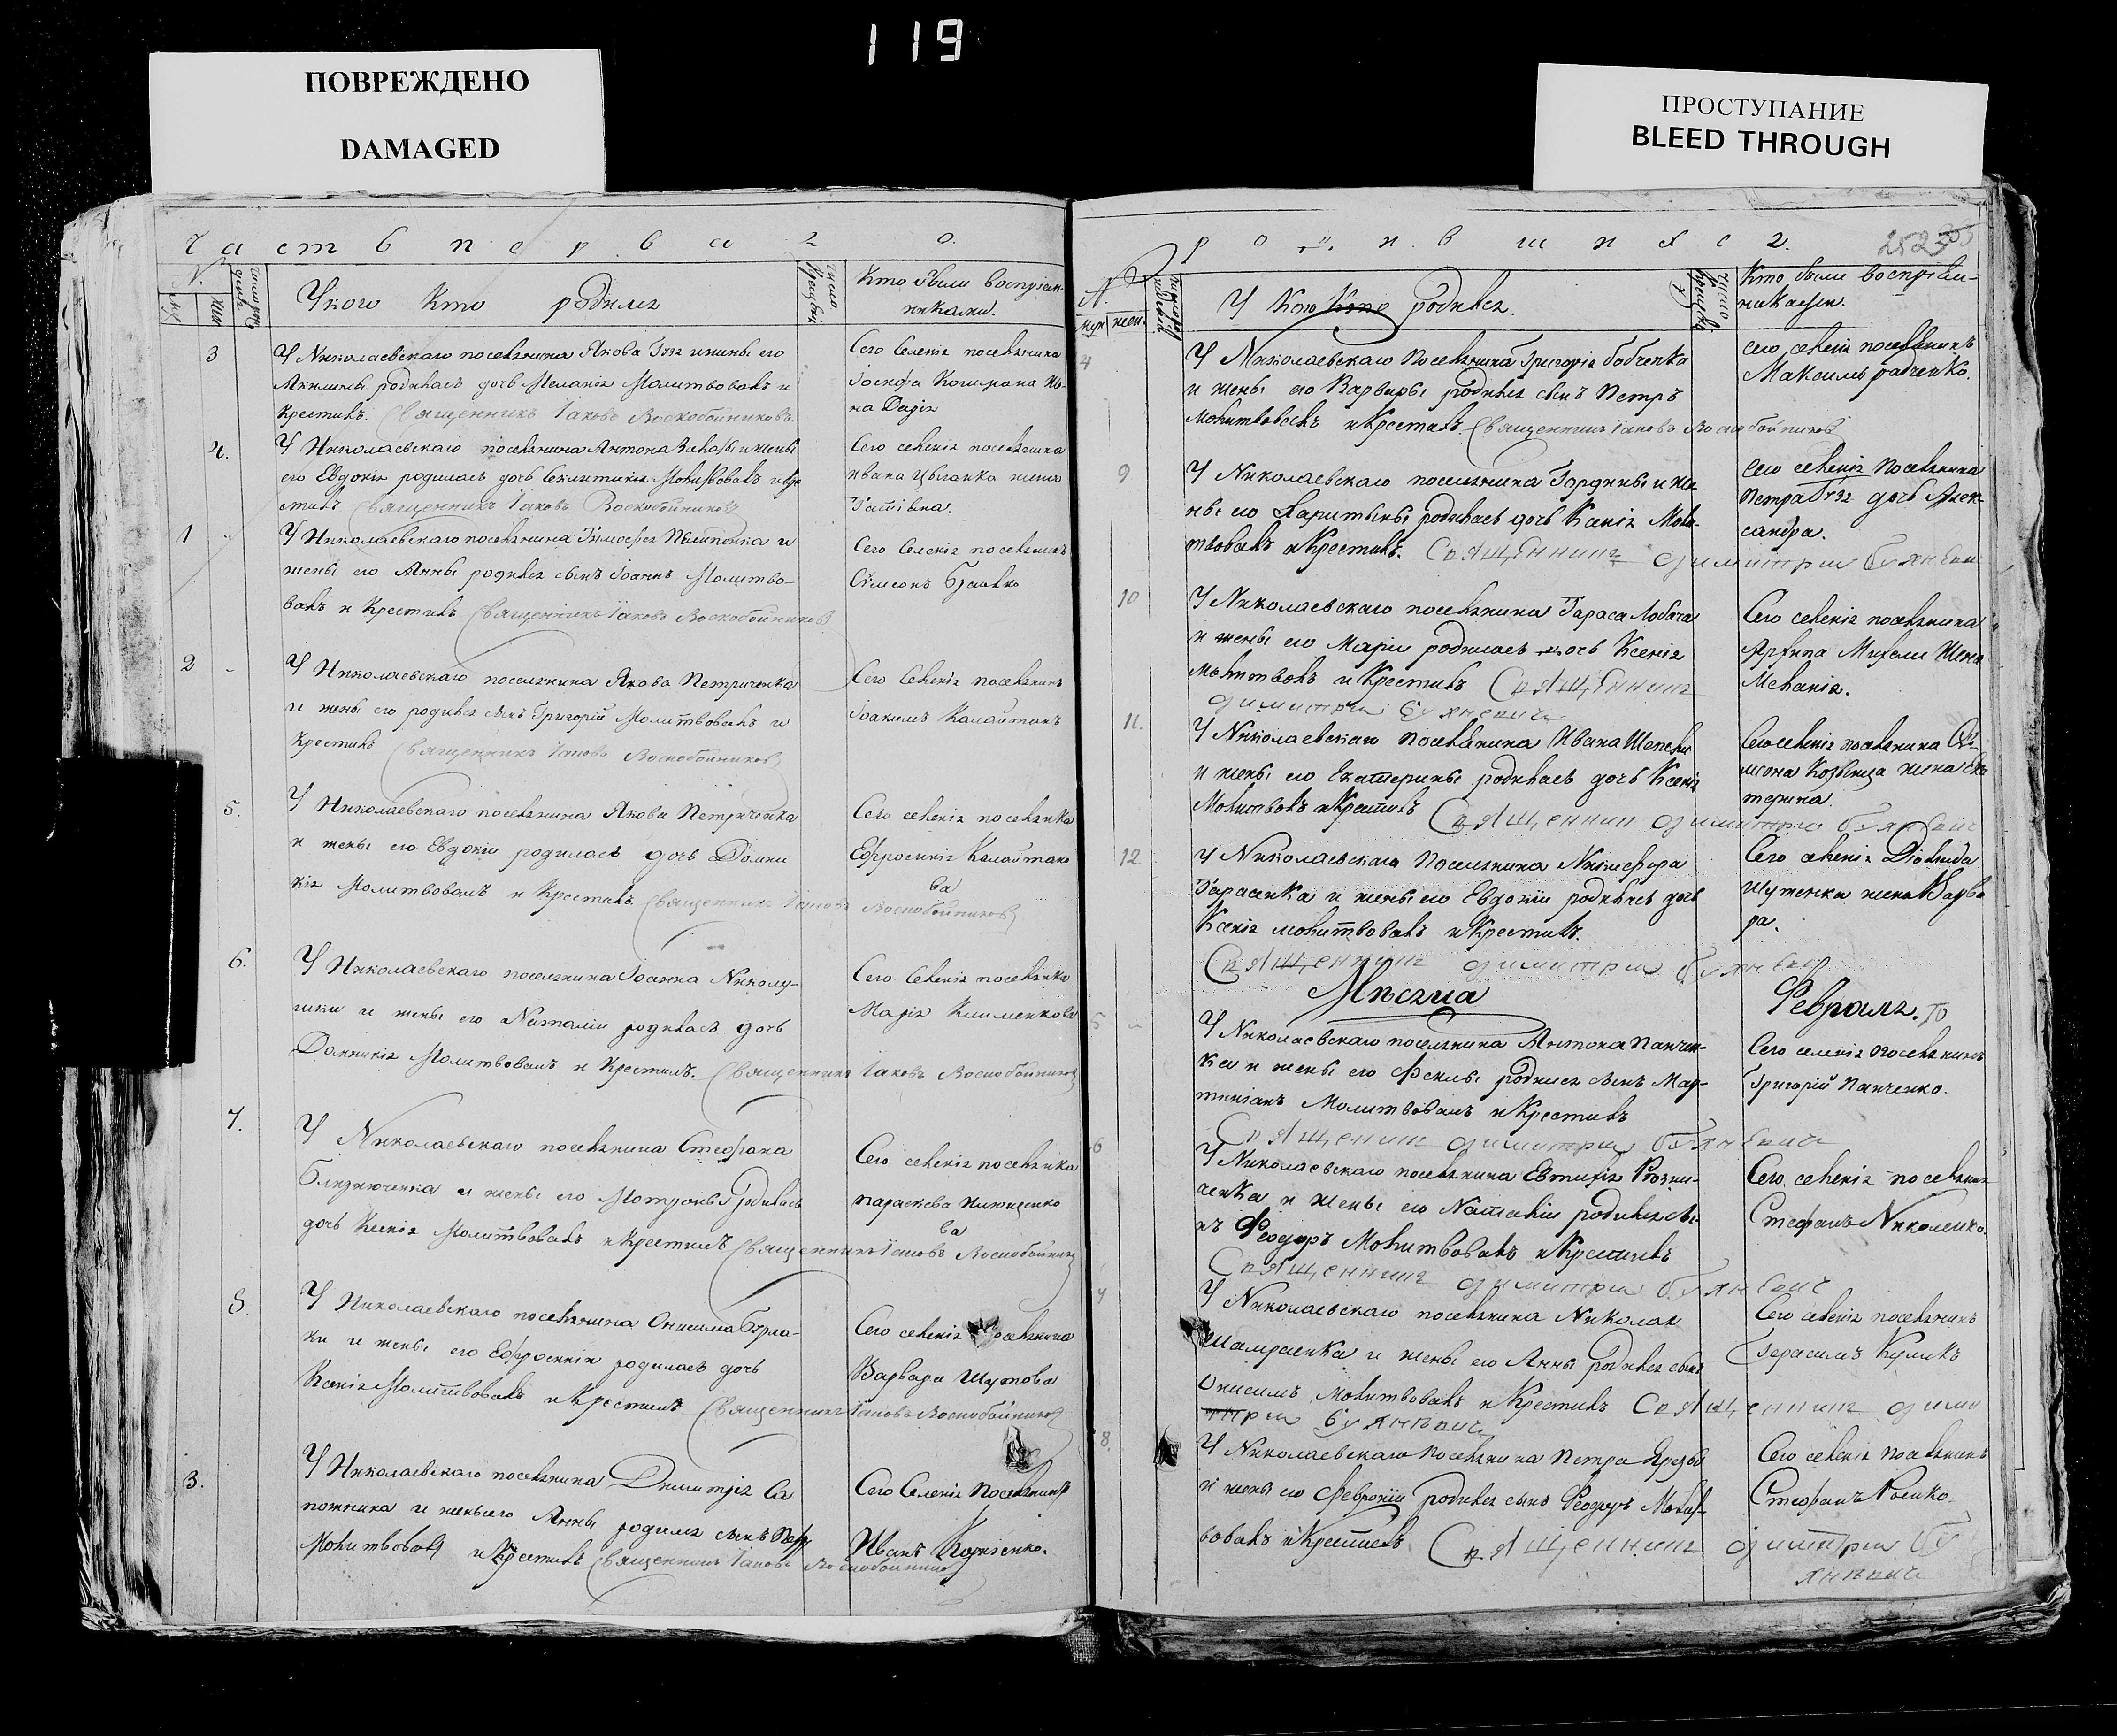 119
ПОВРЕЖДЕНО
DAMAGED
ПРОСТУПАНИЕ
BLEED THROUGH
Часть перваго.
N.
муж
жен
У кого кто родился
Кто были восприем-
никами.
3
У Николаевскаго поселянина Якова Гуз и жены его
Акилины родилась дочь Меланія Молитвовалъ и
Крестилъ. Священникъ Іаковъ Воскобойниковъ
Сего Селенія поселянина
Іосифа жи-
на Дарія
4.
У Николаевскаго поселянина Антона и жены
его Евдокіи родилась дочь Молитвовалъ и кре
стилъ Священникъ Іаковъ Воскобойниковъ
Сего селенія поселянина
Ивана Цыганка жена
1
У Николаевскаго поселянина Тимофея Пилипенка и
жены его Анны родился сынъ Іоаннъ Молитво-
валъ и Крестилъ Священникъ Іаковъ Воскобойниковъ
Сего Селенія поселянинъ
Симеонъ
2
У Николаевскаго поселянина Якова Петриченка
и жены его родился сынъ Григорій Молитвовалъ и
Крестилъ Священникъ Іаковъ Воскобойниковъ
Сего Селенія поселянинъ
Іоакимъ Калайтанъ
5.
У Николаевскаго поселянина Якова Петриченка
и жены его Евдокіи родилась дочь Домни
кія Молитвовалъ и Крестилъ Священникъ Іаковъ Воскобойниковъ
Сего селенія поселянка
Ефросинія Калайтано
ва
6.
У Николаевскаго поселянина Іоанна Николу-
шки и жены его Наталіи родилась дочь
Домникія Молитвовалъ и Крестилъ. Священникъ Іаковъ Воскобойниковъ
Сего Селенія поселянка
Марія Клименкова
7.
У Николаевскаго поселянина Стефана
Близнюченка и жены его Мотроны родилась
дочь Ксенія Молитвовалъ и Крестилъ Священникъ Іаковъ Воскобойниковъ
Сего селенія поселянка
Параскева
ва
8.
У Николаевскаго поселянина Онисима Бурла-
ки и жены его Ефросиніи родилась дочь
Ксенія Молитвовалъ и Крестилъ Священникъ Іаковъ Воскобойниковъ
Сего селенія
Варвара Шутова
3.
У Николаевскаго поселянина Димитрія Са
пожника и жены его Анны родился сынъ Петръ
Молитвовалъ и Крестилъ Священникъ Іаковъ Воскобойниковъ
Сего Селенія Поселянинъ
Иванъ Корніенко.
родившихся.
252
N.
муж
жен.
У Кого Кто родился.
Кто были восприем-
никами.
4
У Николаевскаго Поселянина Григорія Бобченка
и жены его Варвары родился сынъ Петръ
Молитвовалъ и Крестилъ. Священникъ Іаковъ Воскобойниковъ
Сего селенія поселянинъ
Максимъ Рабченко.
9
У Николаевскаго поселянина Гордины и же
ны его Харитины родилась дочь Ксенія Моли-
твовалъ и Крестилъ. Священникъ Димитрій
Сего селенія Поселянина
Петра Гуза дочь Алек-
сандра.
10
У Николаевскаго поселянина Тараса Лобача
и жены его Маріи родилась дочь Ксенія
Молитвовалъ и Крестилъ Священникъ
Димитрій
Сего селенія поселянина
Архипа жена
Меланія.
11.
У Николаевскаго Поселянина Ивана
и жены его Екатерины родилась дочь Ксенія
Молитвовалъ и Крестилъ Священникъ Димитрій
Сего селенія поселянина Си-
меона жена Ека
терина.
12
У Николаевскаго Поселянина Никифора
Тарасенка и жены его Евдокіи родилась дочь
Ксенія молитвовалъ и Крестилъ.
Священникъ Димитрій
Сего селенія Діомида
Шутенка жена Варва
ра.
Мѣсяца Февраля.
5
У Николаевскаго поселянина Антона Панчен-
ка и жены его Феклы родился сынъ Мар-
тиніанъ Молитвовалъ и Крестилъ
Священникъ Димитрій
Сего селенія поселянинъ
Григорій Панченко.
6
У Николаевскаго поселянина Евтихія
ченка и жены его Наталіи родился сы-
нъ Феодоръ Молитвовалъ и Крестилъ
Священникъ Димитрій
Сего селенія поселянинъ
Стефанъ Николенко.
У Николаевскаго поселянина Николая
Шамраенка и жены его Анны родился сынъ
Онисимъ Молитвовалъ и Крестилъ Священникъ Дими
трій
Сего селенія поселянинъ
Герасимъ Куликъ
8.
У Николаевскаго Поселянина Петра
и жены его Февроніи родился сынъ Феодоръ Молит-
вовалъ и Крестилъ Священникъ Димитрій
Сего селенія поселянинъ
Стефанъ